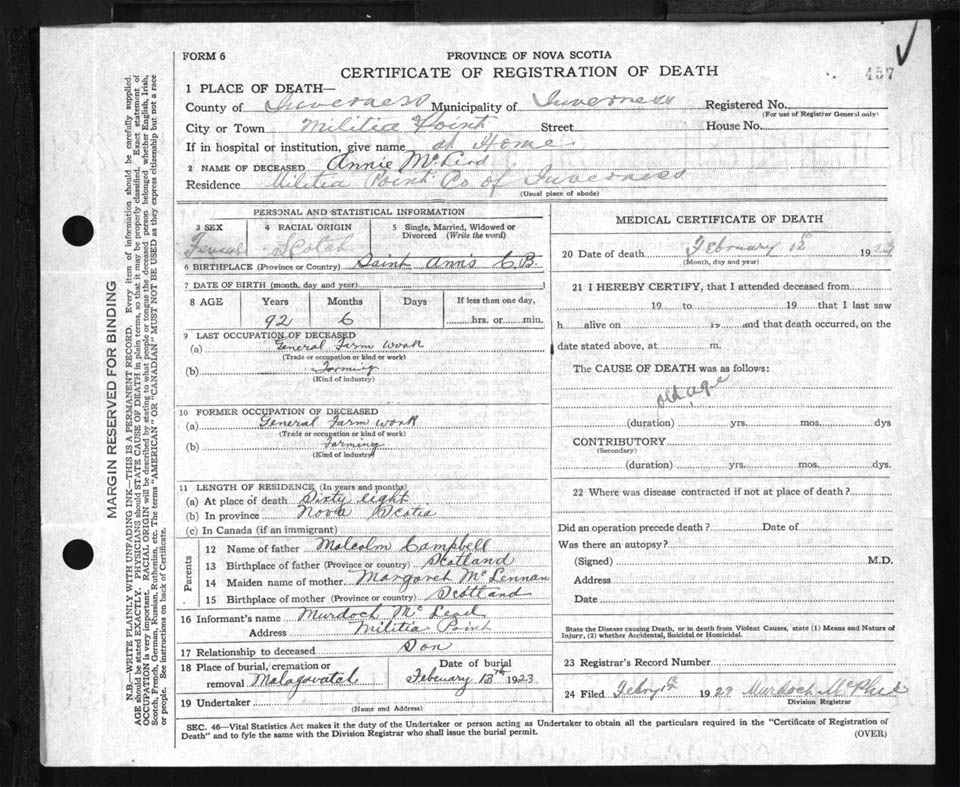 FORM 6
PROVINCE OF NOVA SCOTIA
CERTIFICATE OF REGISTRATION OF DEATH
457
1 PLACE OF DEATH—
County of Inverness Municipality of Inverness Registered No.
(For use of Registrar General only)
City or Town Militia Point Street House No.
If in hospital or institution, give name at Home
2 NAME OF DECEASED Annie Mc Leod
Residence Militia Point Co of Inverness
(Usual place of abode)
PERSONAL AND STATISTICAL INFORMATION
3 SEX 4 RACIAL ORIGIN 5 Single, Married, Widowed or
Divorced (Write the word)
Female Scotch
6 BIRTHPLACE (Province or Country) Saint Anns C.B.
7 DATE OF BIRTH (month, day and year)
8 AGE Years Months Days If less than one day,
92 6 hrs. or min.
9 LAST OCCUPATION OF DECEASED
(a) General Farm work
(Trade or occupation or kind or work)
(b) Farming
(Kind of industry)
10 FORMER OCCUPATION OF DECEASED
(a) General Farm work
(Trade or occupation or kind or work)
(b) Farming
(Kind of industry)
11 LENGTH OF RESIDENCE (In years and months)
(a) At place of death Sixty eight
(b) In province Nova Scotia
(c) In Canada (if an immigrant)
Parents
12 Name of father Malcolm Campbell
13 Birthplace of father (Province or country) Scotland
14 Maiden name of mother Margaret Mc Lennan
15 Birthplace of mother (Province or country) Scotland
16 Informant's name Murdoch Mc Leod
Address Militia Point
17 Relationship to deceased Son
18 Place of burial, cremation or Date of burial
removal Malagawatch February 13th 1923
19 Undertaker
(Name and Address)
MEDICAL CERTIFICATE OF DEATH
20 Date of death February 12th 1923
(Month, day and year)
21 I HEREBY CERTIFY, that I attended deceased from
19 to 19 that I last saw
h alive on 19 and that death occurred, on the
date stated above, at m.
The CAUSE OF DEATH was as follows:
old age
(duration) yrs. mos. dys
CONTRIBUTORY
(Secondary)
(duration) yrs. mos. dys.
22 Where was disease contracted if not at place of death?
Did an operation precede death? Date of
Was there an autopsy?
(Signed) M.D.
Address
Date
State the Disease causing Death, or in death from Violent Causes, state (1) Means and Nature of
Injury, (2) whether Accidental, Suicidal or Homicidal.
23 Registrar's Record Number
24 Filed 1923 Murdoch McPhee
Division Registrar
SEC. 46—Vital Statistics Act makes it the duty of the Undertaker or person acting as Undertaker to obtain all the particulars required in the "Certificate of Registration of
Death" and to fyle the same with the Division Registrar who shall issue the burial permit.
(OVER)
MARGIN RESERVED FOR BINDING
N.B.—WRITE PLAINLY WITH UNFADING INK—THIS IS A PERMANENT RECORD. Every item of information should be carefully supplied.
AGE should be stated EXACTLY. PHYSICIANS should STATE CAUSE OF DEATH in plain terms, so that it may be properly classified. Exact statement of
OCCUPATION is very important. RACIAL ORIGIN will be described by stating to what people or tongue the deceased person belonged whether English, Irish,
Scotch, French, German, Russian, Ruthenian, etc. The terms "AMERICAN" OR "CANADIAN" MUST NOT BE USED as they express citizenship but not a race
or people. See instructions on back of Certificate.